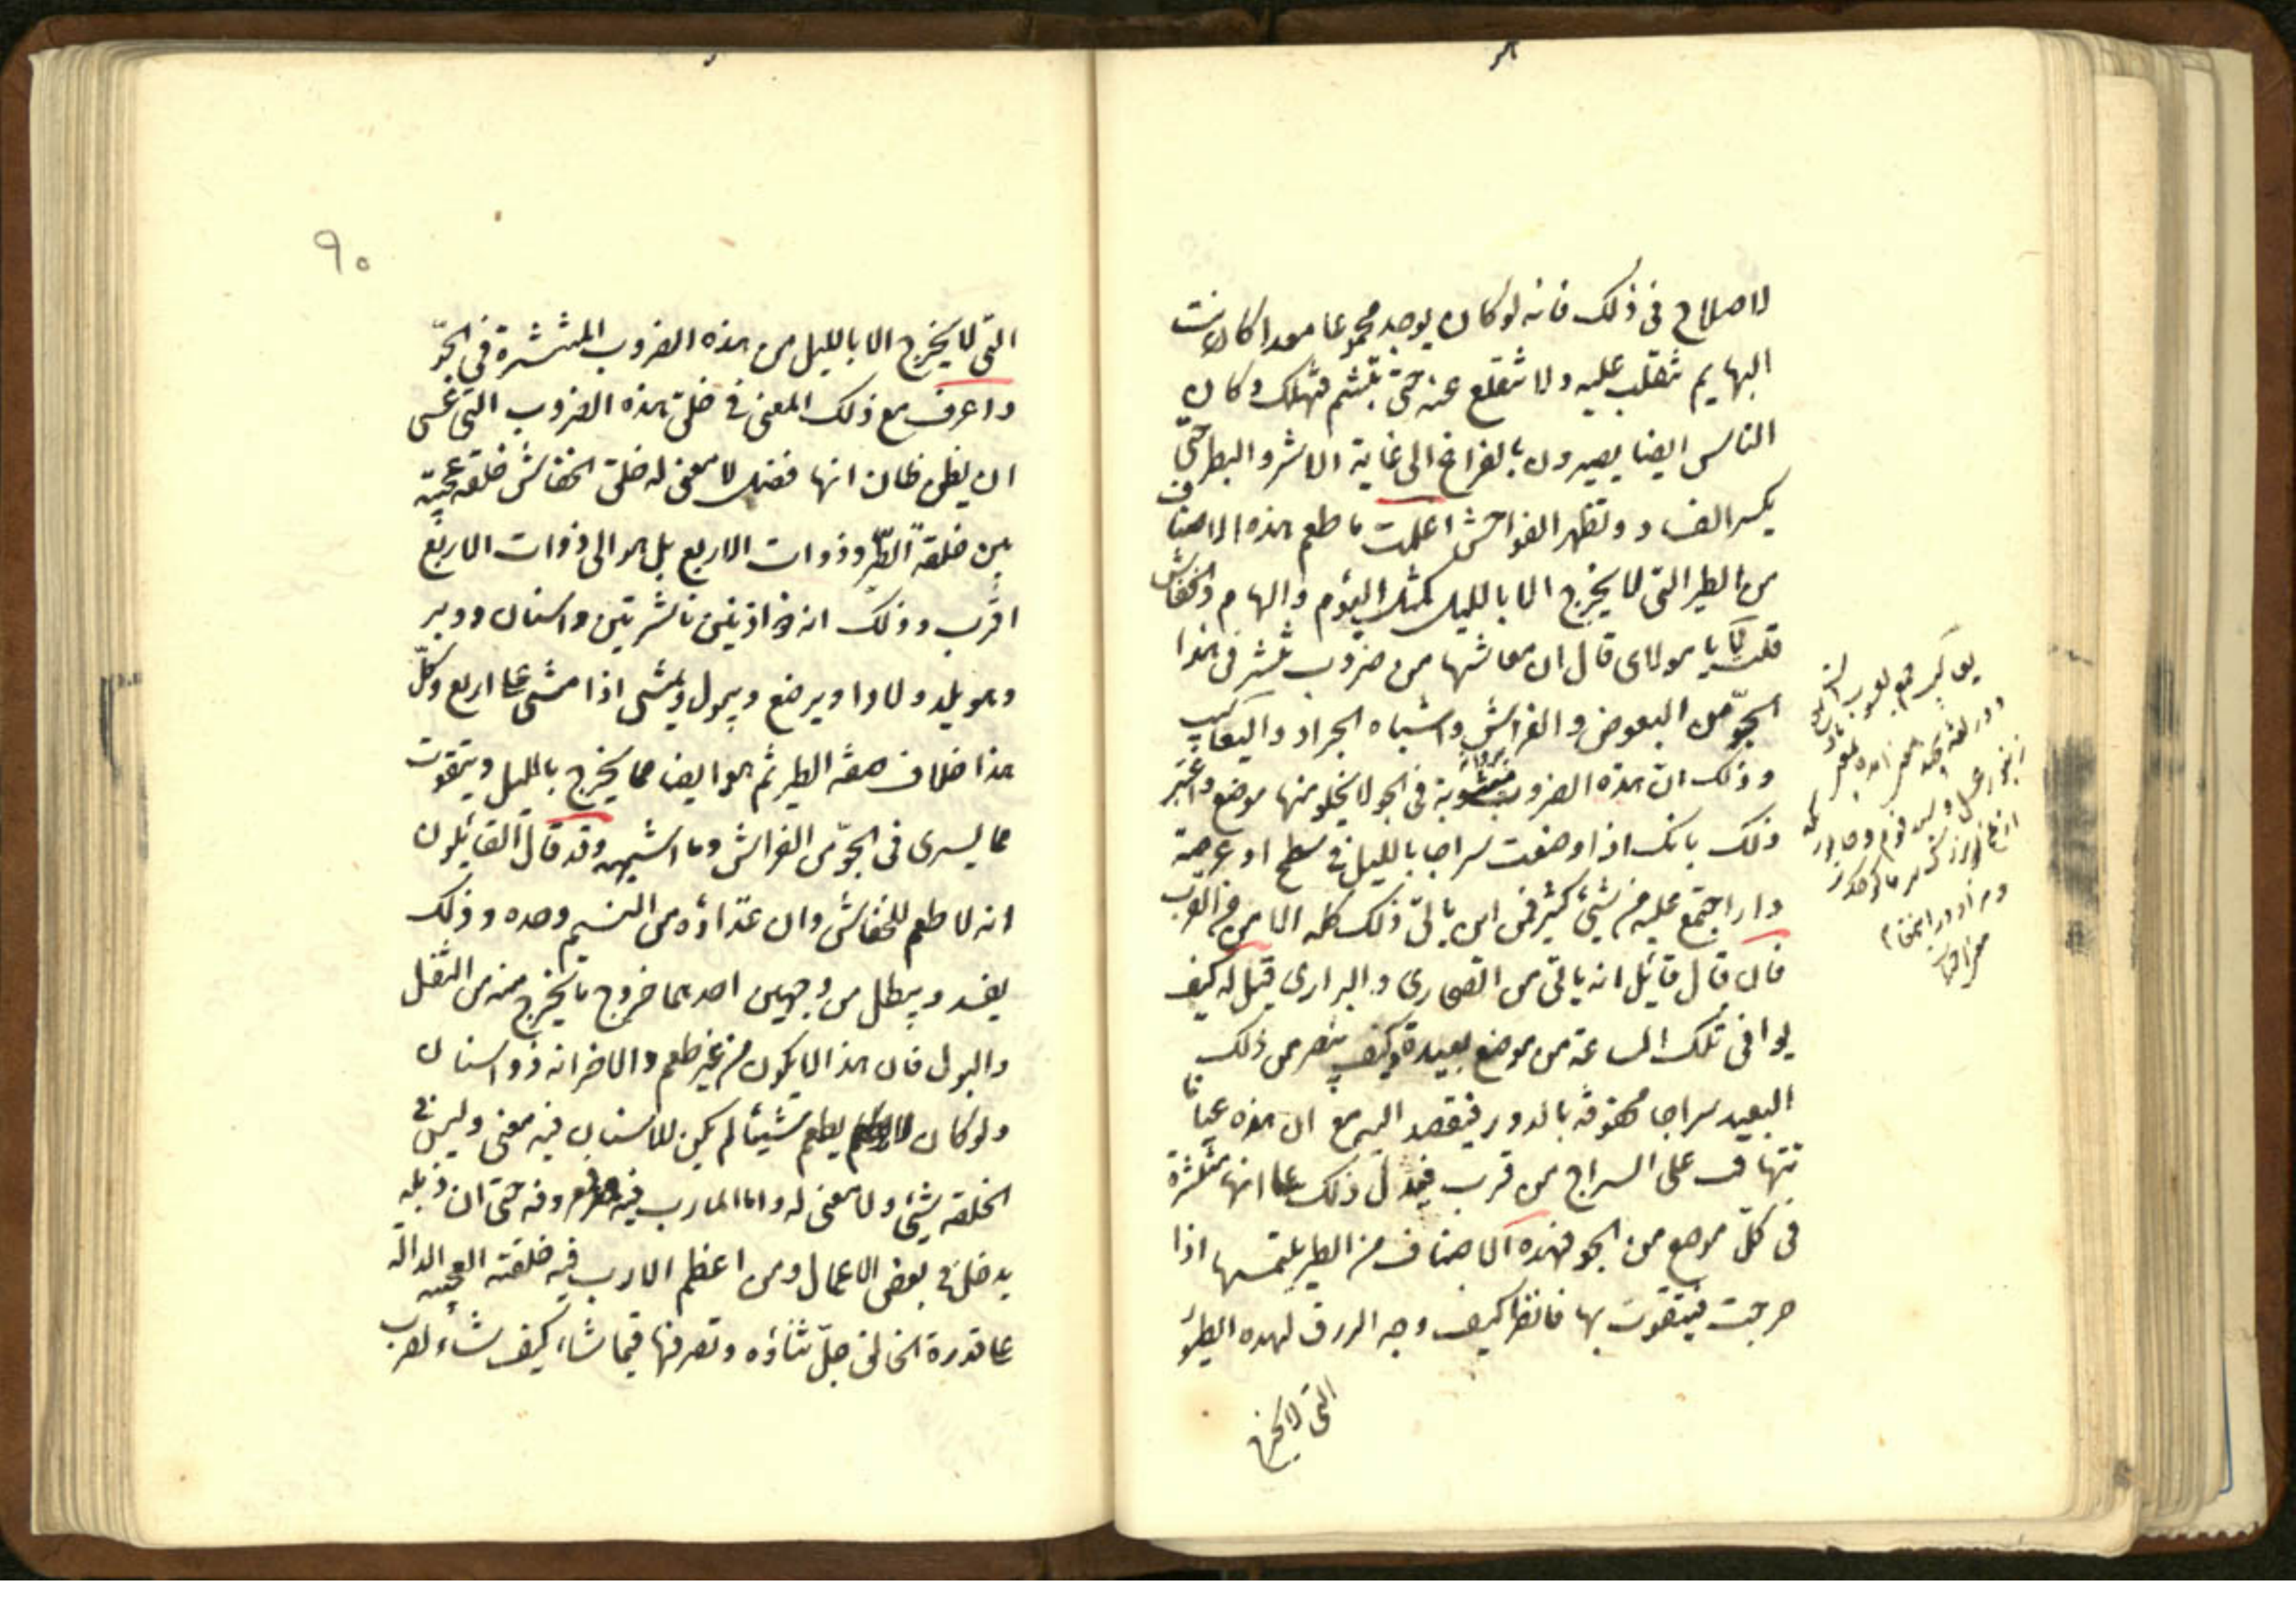 لاصلاح فى ذلك فانه لو كان يوجد مجموعا معدا كانت
البهايم تنقلب عليه ولا تنقلع عنه حتى تبشم فتهلك وكان
الناس ايضا يصيرون بالفراغ الى غاية الاشر والبطر حتى
يكسر الفساد وتظهر الفواحش اعلمت ما طعم هذه الاصناف
من الطير التى لا يخرج الا بالليل كمثل البوم والهام والخفاش
قلت لا يا مولاى قال ان معاشها من ضروب تنتشر فى هذا
الجو من البعوض والفراش واشباه الجراد واليعاسيب
وذلك ان هذه الضروب مبثوثة فى الجو لا يخلو منها موضع واعتبر
ذلك بانك اذا وضعت سراجا بالليل فى سطح او عرصة
دار اجتمع عليه من شىء كثير فمن اين ياتى ذلك كله الا من القرب
فان قال قائل انه ياتى من الصحارى والبرارى قيل له كيف
يوافى تلك الساعة من موضع بعيد وكيف يبصر من ذلك
البعيد سراجا محفوفة بالدور فيقصد اليه مع ان هذه عيانا
تتهافت على السراج من قرب فيدل ذلك على انها منتشرة
فى كل موضع من الجو فهذه الاصناف من الطير يلتمسها اذا
خرجت فيتقوت بها فانظر كيف وجه الرزق لهذه الطيور
التى لا يخرج
٩٠
التى لا يخرج الا بالليل من هذه الضروب المنتشرة فى الجو
واعرف مع ذلك المعنى فى خلق هذه الضروب التى عسى
ان يظن ظان انها فضل لا معنى له خلق الخفاش خلقة عجيبة
بين خلقة الطير وذوات الاربع بل هو الى ذوات الاربع
اقرب وذلك انه ذو اذنين ناشزتين واسنان ووبر
وهو يلد ولادا ويرضع ويبول ويمشى اذا مشى على اربع وكل
هذا خلاف صفة الطير ثم هو ايضا مما يخرج بالليل ويتقوت
مما يسرى فى الجو من الفراش وما اشبهه وقد قال القائلون
انه لا طعم للخفاش وان غذاؤه من النسيم وحده وذلك
يفسد ويبطل من وجهين احدهما خروج ما يخرج منه من الثقل
والبول فان هذا لا يكون من غير طعم والاخر انه ذو اسنان
ولو كان لا يطعم شيئا لم يكن للاسنان فيه معنى وليس فى
الخلقة شىء ولا معنى له واما المارب فيه معروفه حتى ان زبله
يدخل فى بعض الاعمال ومن اعظم الارب فيه خلقته العجيبه الدالة
على قدرة الخالق جل ثناؤه وتصرفها فيما شاء كيف شاء لضرب